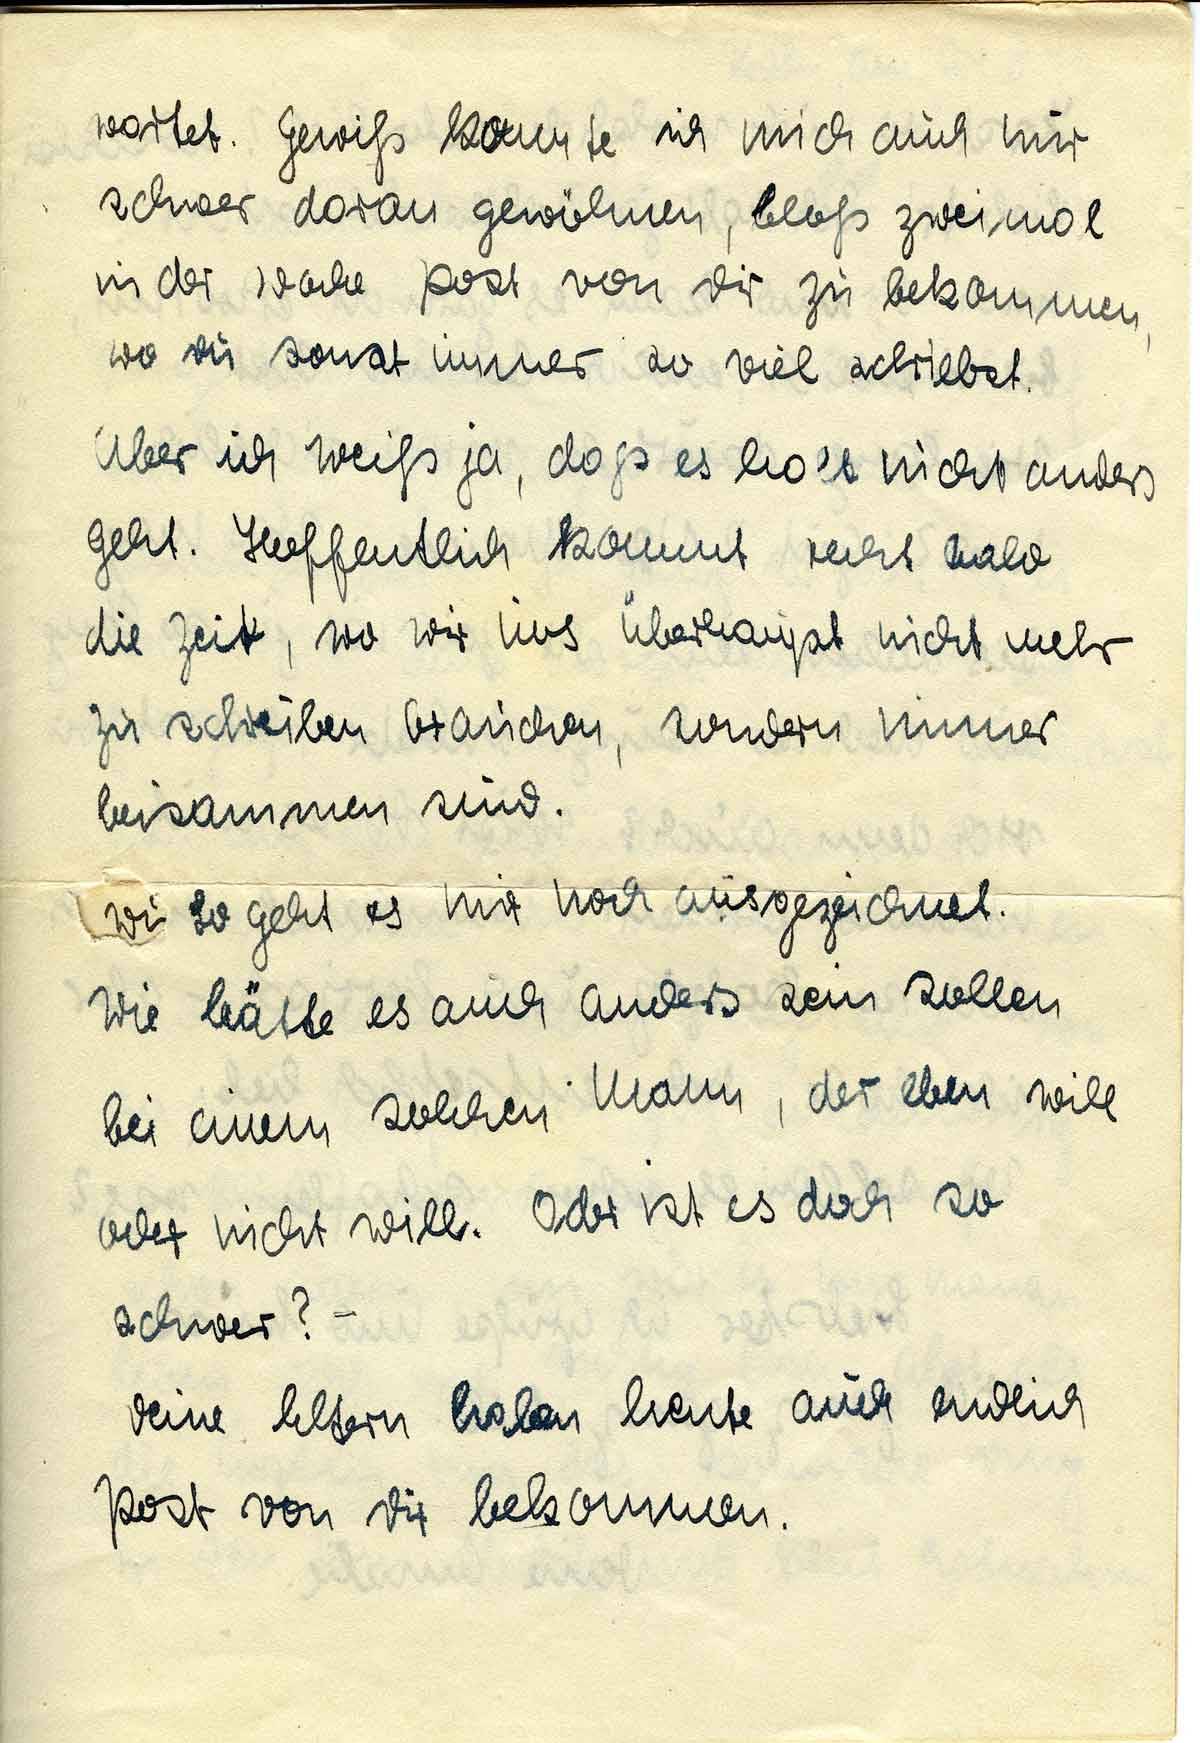 wartet. Gewiß konnte ich mich auch nur
schwer daran gewöhnen, bloß zweimal
in der Woche Post von dir zu bekommen,
wo du sonst immer so viel schriebst.
Aber ich weiß ja, daß es halt nicht anders
geht. Hoffentlich kommt recht bald
die Zeit, wo wir uns überhaupt nicht mehr
zu schreiben brauchen, sondern immer
beisammen sind.
so geht es mir noch ausgezeichnet.
Wie hätte es auch anders sein sollen
bei einem solchen Mann, der eben will
oder nicht will. Oder ist es doch so
schwer? –
Deine Eltern haben heute auch endlich
Post von dir bekommen.